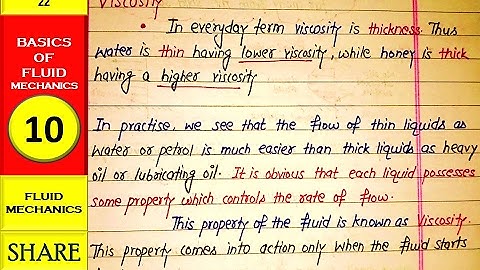 22
BASICS
OF
FLUID
MECHANICS
10
FLUID
MECHANICS
SHARE
Viscosity
• In everyday term viscosity is thickness. Thus
water is thin having lower viscosity, while honey is thick
having a higher viscosity
In practise, we see that the flow of thin liquids as
water or petrol is much easier than thick liquids as heavy
oil or lubricating oil. It is obvious that each liquid possesses
some property which controls the rate of flow.
This property of the fluid is known as Viscosity.
This property comes into action only when the fluid starts